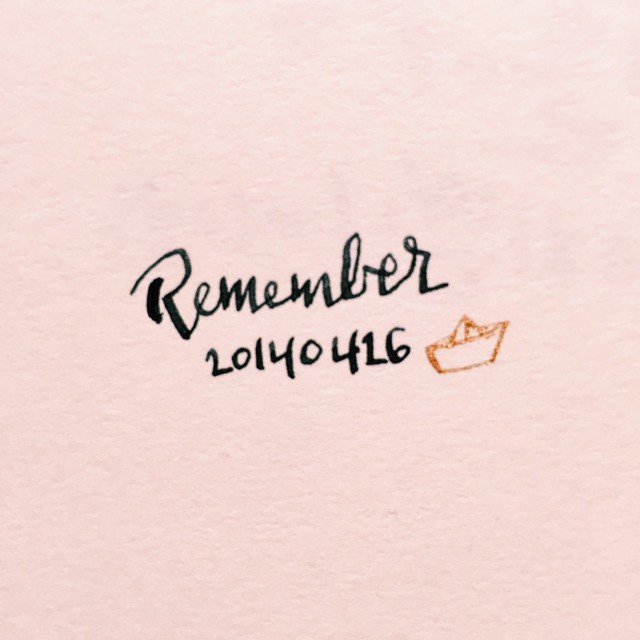 Remember
20140416